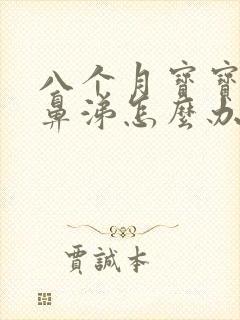 八个月寶寶
鼻涕怎麼办
賈誠本